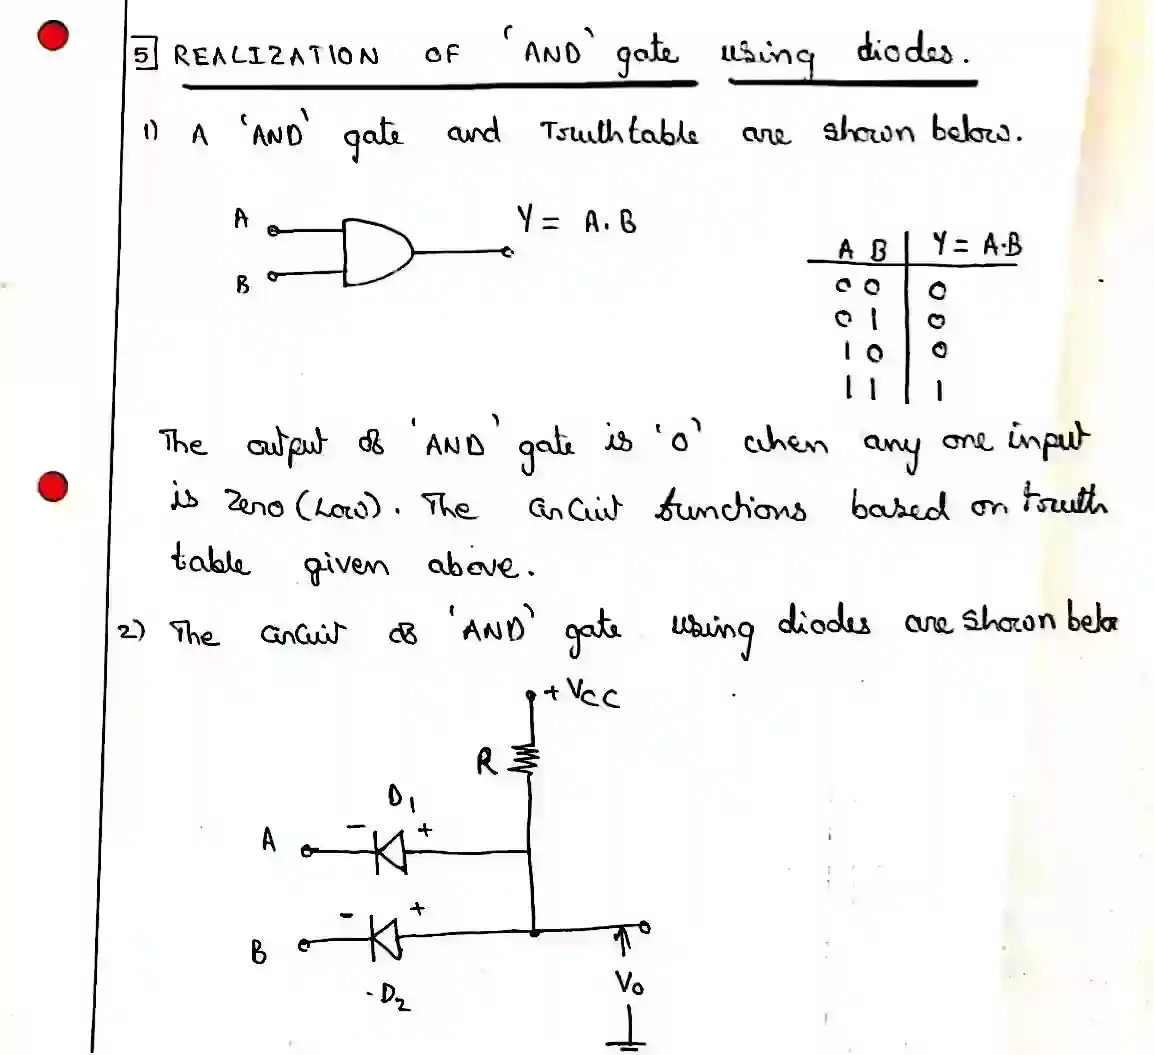 5 REALIZATION OF 'AND' gate using diodes.
1) A 'AND' gate and Truth table are shown below.
A
Y = A.B
B
A B Y = A.B
0 0 0
0 1 0
1 0 0
1 1 1
The output of 'AND' gate is '0' when any one input
is zero (Low). The circuit functions based on truth
table given above.
2) The circuit of 'AND' gate using diodes are shown belo
+ VCC
R
D1
A - +
B - +
D2
Vo